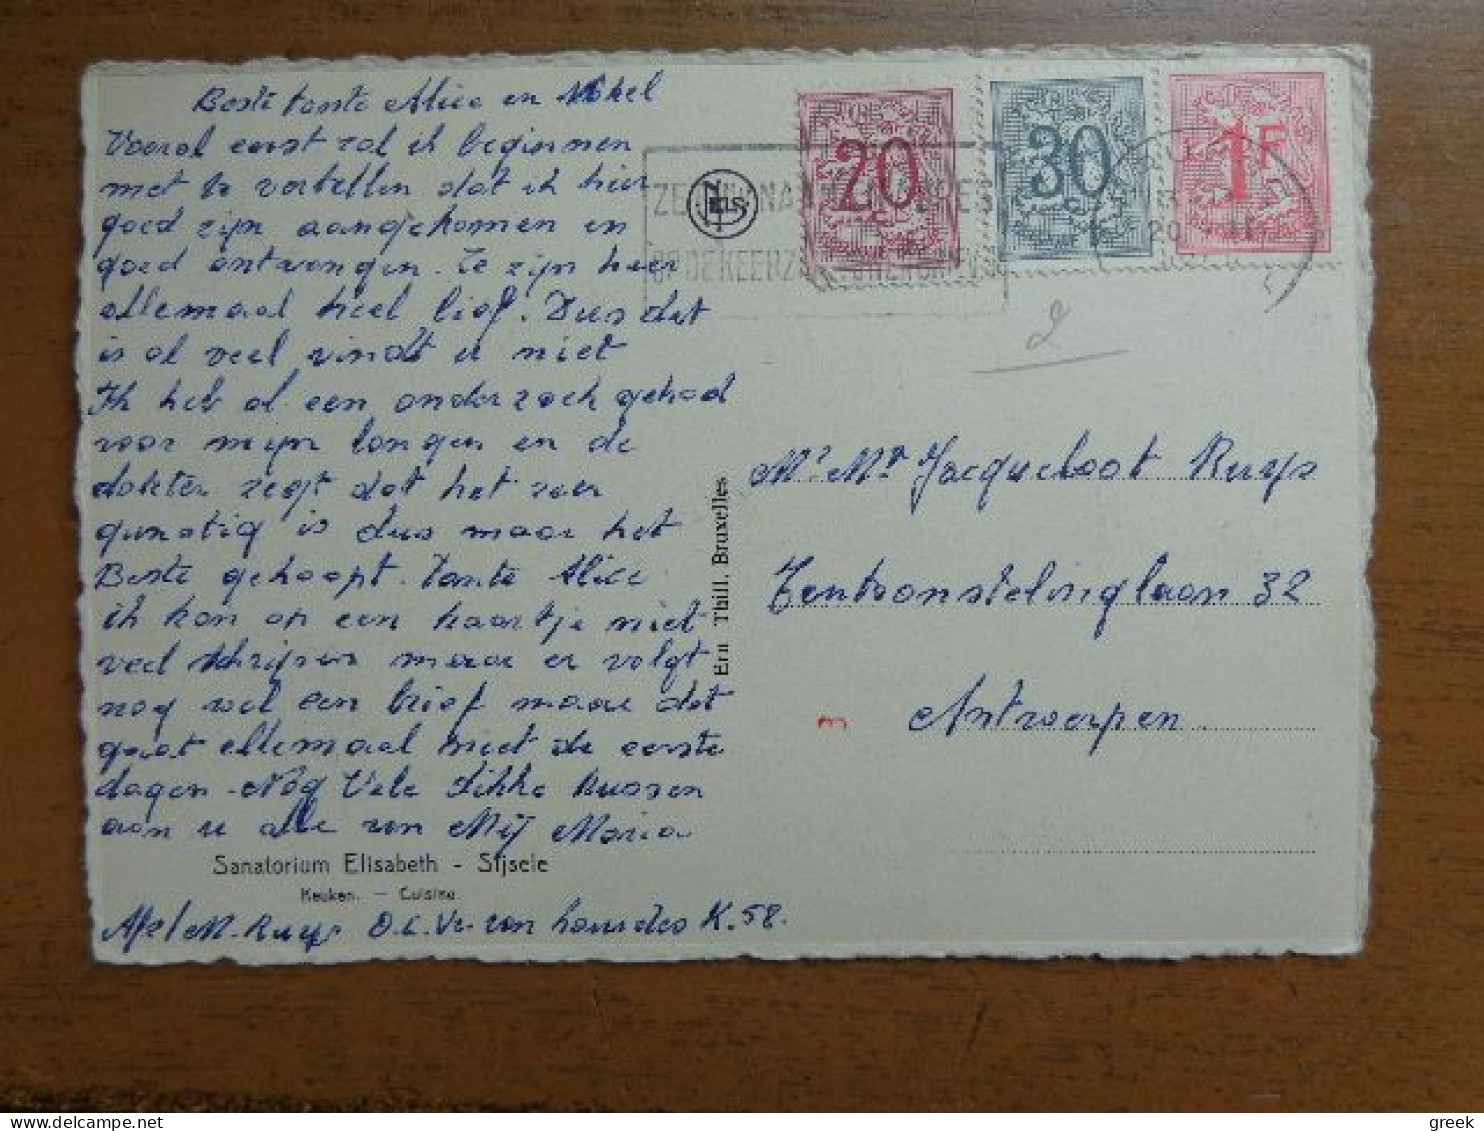 Beste tante Alice en Nokel
Vooral eerst zal ik beginnen
met te vertellen dat ik hier
goed zijn aangekomen en
goed ontvangen. Ze zijn hier
allemaal heel lief. Dus dat
is al veel vindt u niet
Ik heb al een onderzoek gehad
voor mijn longen en de
dokter zegt dat het zeer
gunstig is dus maar het
Beste gehoopt. Tante Alice
ik kan op een kaartje niet
veel schrijven maar er volgt
nog wel een brief maar dat
gaat allemaal niet de eerste
dagen. Nog Vele Dikke Kussen
aan u alle van Mij Maria
Sanatorium Elisabeth - Sijsele
Keuken. - Cuisine.
Afz/M. Ruys O.L.Vr. van Lourdes K.58.
NELS
20
30
1F
Ern. Thill, Bruxelles
Mr Jacqueloot Ruys
Tentoonstelinglaan 32
Antwerpen